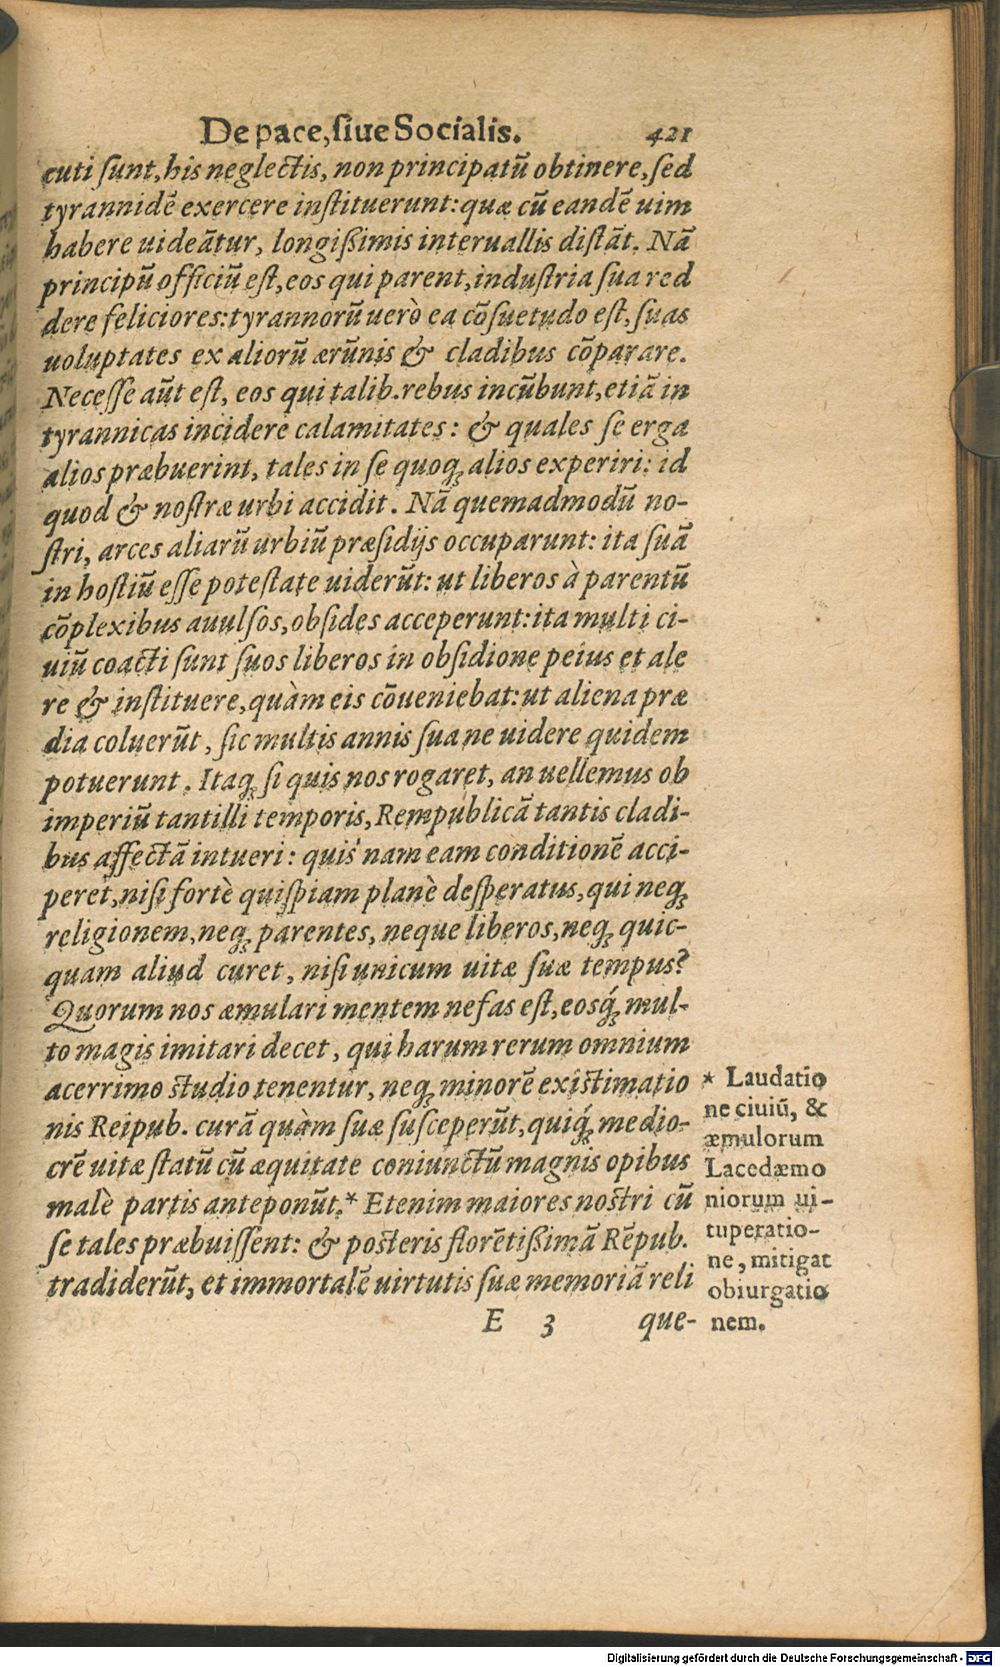 De pace, ſiue Socialis. 421
cuti ſunt, his neglectis, non principatū obtinere, ſed
tyrannidē exercere inſtituerunt: quæ cū eandē uim
habere uideātur, longißimis interuallis diſtāt. Nā
principū officiū eſt, eos qui parent, induſtria ſua red
dere feliciores: tyrannorū uerò ea cōſuetudo eſt, ſuas
uoluptates ex aliorū ærūnis & cladibus cōparare.
Neceſſe aūt eſt, eos qui talib. rebus incūbunt, etiā in
tyrannicas incidere calamitates: & quales ſe erga
alios præbuerint, tales in ſe quoq; alios experiri: id
quod & noſtræ urbi accidit. Nā quemadmodū no-
ſtri, arces aliarū urbiū præſidijs occuparunt: ita ſuā
in hoſtiū eſſe poteſtate uiderūt: ut liberos à parentū
cōplexibus auulſos, obſides acceperunt: ita multi ci-
uiū coacti ſunt ſuos liberos in obſidione peius et ale
re & inſtituere, quàm eis cōueniebat: ut aliena præ
dia coluerūt, ſic multis annis ſua ne uidere quidem
potuerunt. Itaq; ſi quis nos rogaret, an uellemus ob
imperiū tantilli temporis, Rempublicā tantis cladi-
bus affectā intueri: quis nam eam conditionē acci-
peret, niſi fortè quiſpiam planè deſperatus, qui neq;
religionem, neq; parentes, neque liberos, neq; quic-
quam aliud curet, niſi unicum uitæ ſuæ tempus?
Quorum nos æmulari mentem nefas eſt, eosq́; mul-
to magis imitari decet, qui harum rerum omnium
acerrimo ſtudio tenentur, neq; minorē exiſtimatio
nis Reipub. curā quàm ſuæ ſuſceperūt, quiq́; medio-
crē uitæ ſtatū cū æquitate coniunctū magnis opibus
malè partis anteponūt.* Etenim maiores noſtri cū
ſe tales præbuiſſent: & poſteris florētißimā Rēpub.
tradiderūt, et immortalē uirtutis ſuæ memoriā reli
E 3 que-
* Laudatio
ne ciuiū, &
æmulorum
Lacedæmo
niorum ui-
tuperatio-
ne, mitigat
obiurgatio
nem.
Digitalisierung gefördert durch die Deutsche Forschungsgemeinschaft - DFG